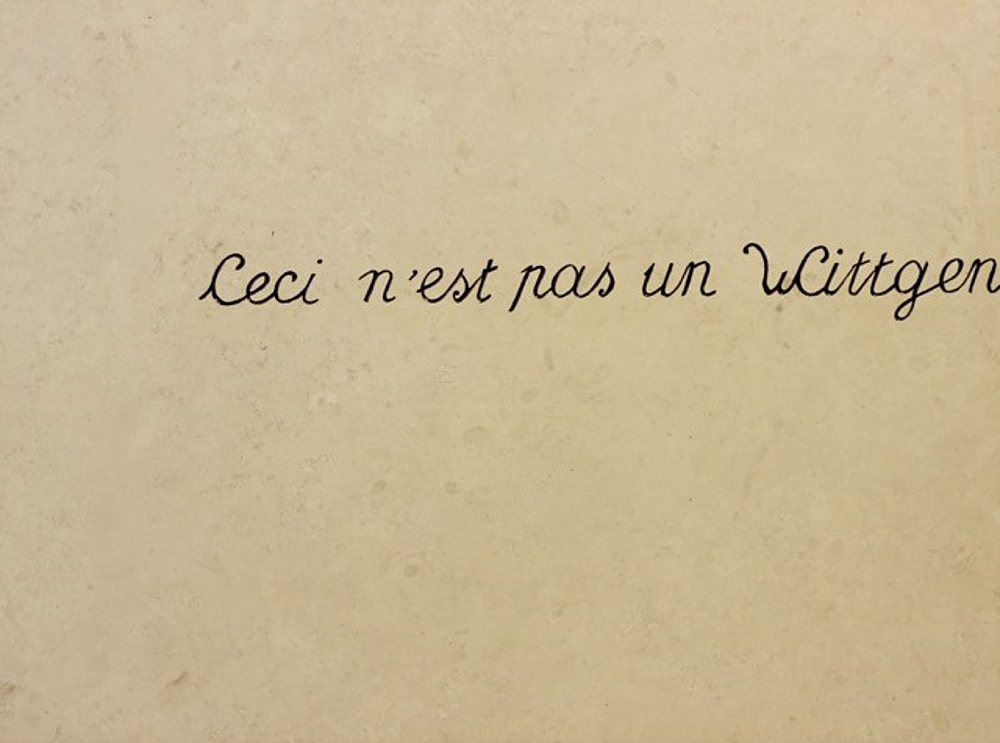 Ceci n'est pas un Wittgen